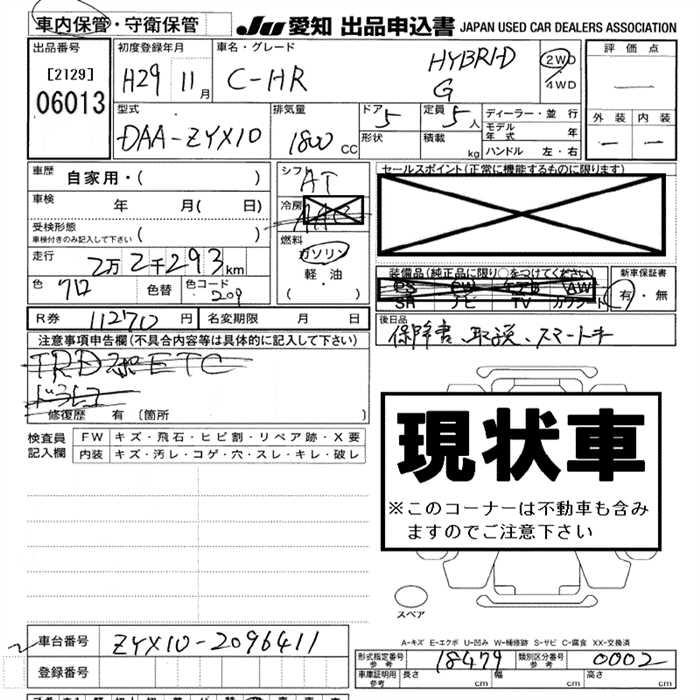 車内保管・守衛保管 JU 愛知 出品申込書 JAPAN USED CAR DEALERS ASSOCIATION
出品番号 初度登録年月 車名・グレード 評価点
[2129] H29 11月 C-HR HYBRID 2WD
06013 G 4WD
型式 排気量 ドア 5 定員 5人 ディーラー・並行 外装 内装
DAA-ZYX10 1800 CC 形状 積載 kg モデル年式 年
ハンドル 左・右
車歴 自家用・( ) シフト AT セールスポイント(正常に機能するものに限ります)
車検 年 月( 日) 冷房 AAC
受検形態
車検付きのみ記入して下さい ( ) 燃料 ガソリン
走行 2万2千293km 軽・油
装備品(純正品に限り○をつけてください) 新車保証書
色 70 色替 色コード 209 ( ) PS PW エアB AW 有・無
SR ナビ TV カワシート
R券 112710円 名変期限 月 日 後日品
保障書、取説、スマートキー
注意事項申告欄(不具合内容等は具体的に記入して下さい)
TRD ETC
ドラレコ
修復歴 有 [箇所
現状車
※このコーナーは不動車も含み
ますのでご注意下さい
検査員 FW キズ・飛石・ヒビ割・リペア跡・X要
記入欄 内装 キズ・汚レ・コゲ・穴・スレ・キレ・破レ
スペア
A-キズ E-エクボ U-凹み W-補修跡 S-サビ C-腐食 XX-交換済
車台番号 ZYX10-2096411
登録番号
形式指定番号 参考 18479 類別区分番号 参考 0002
車庫証明用 参考 長さ cm 幅 cm 高さ cm